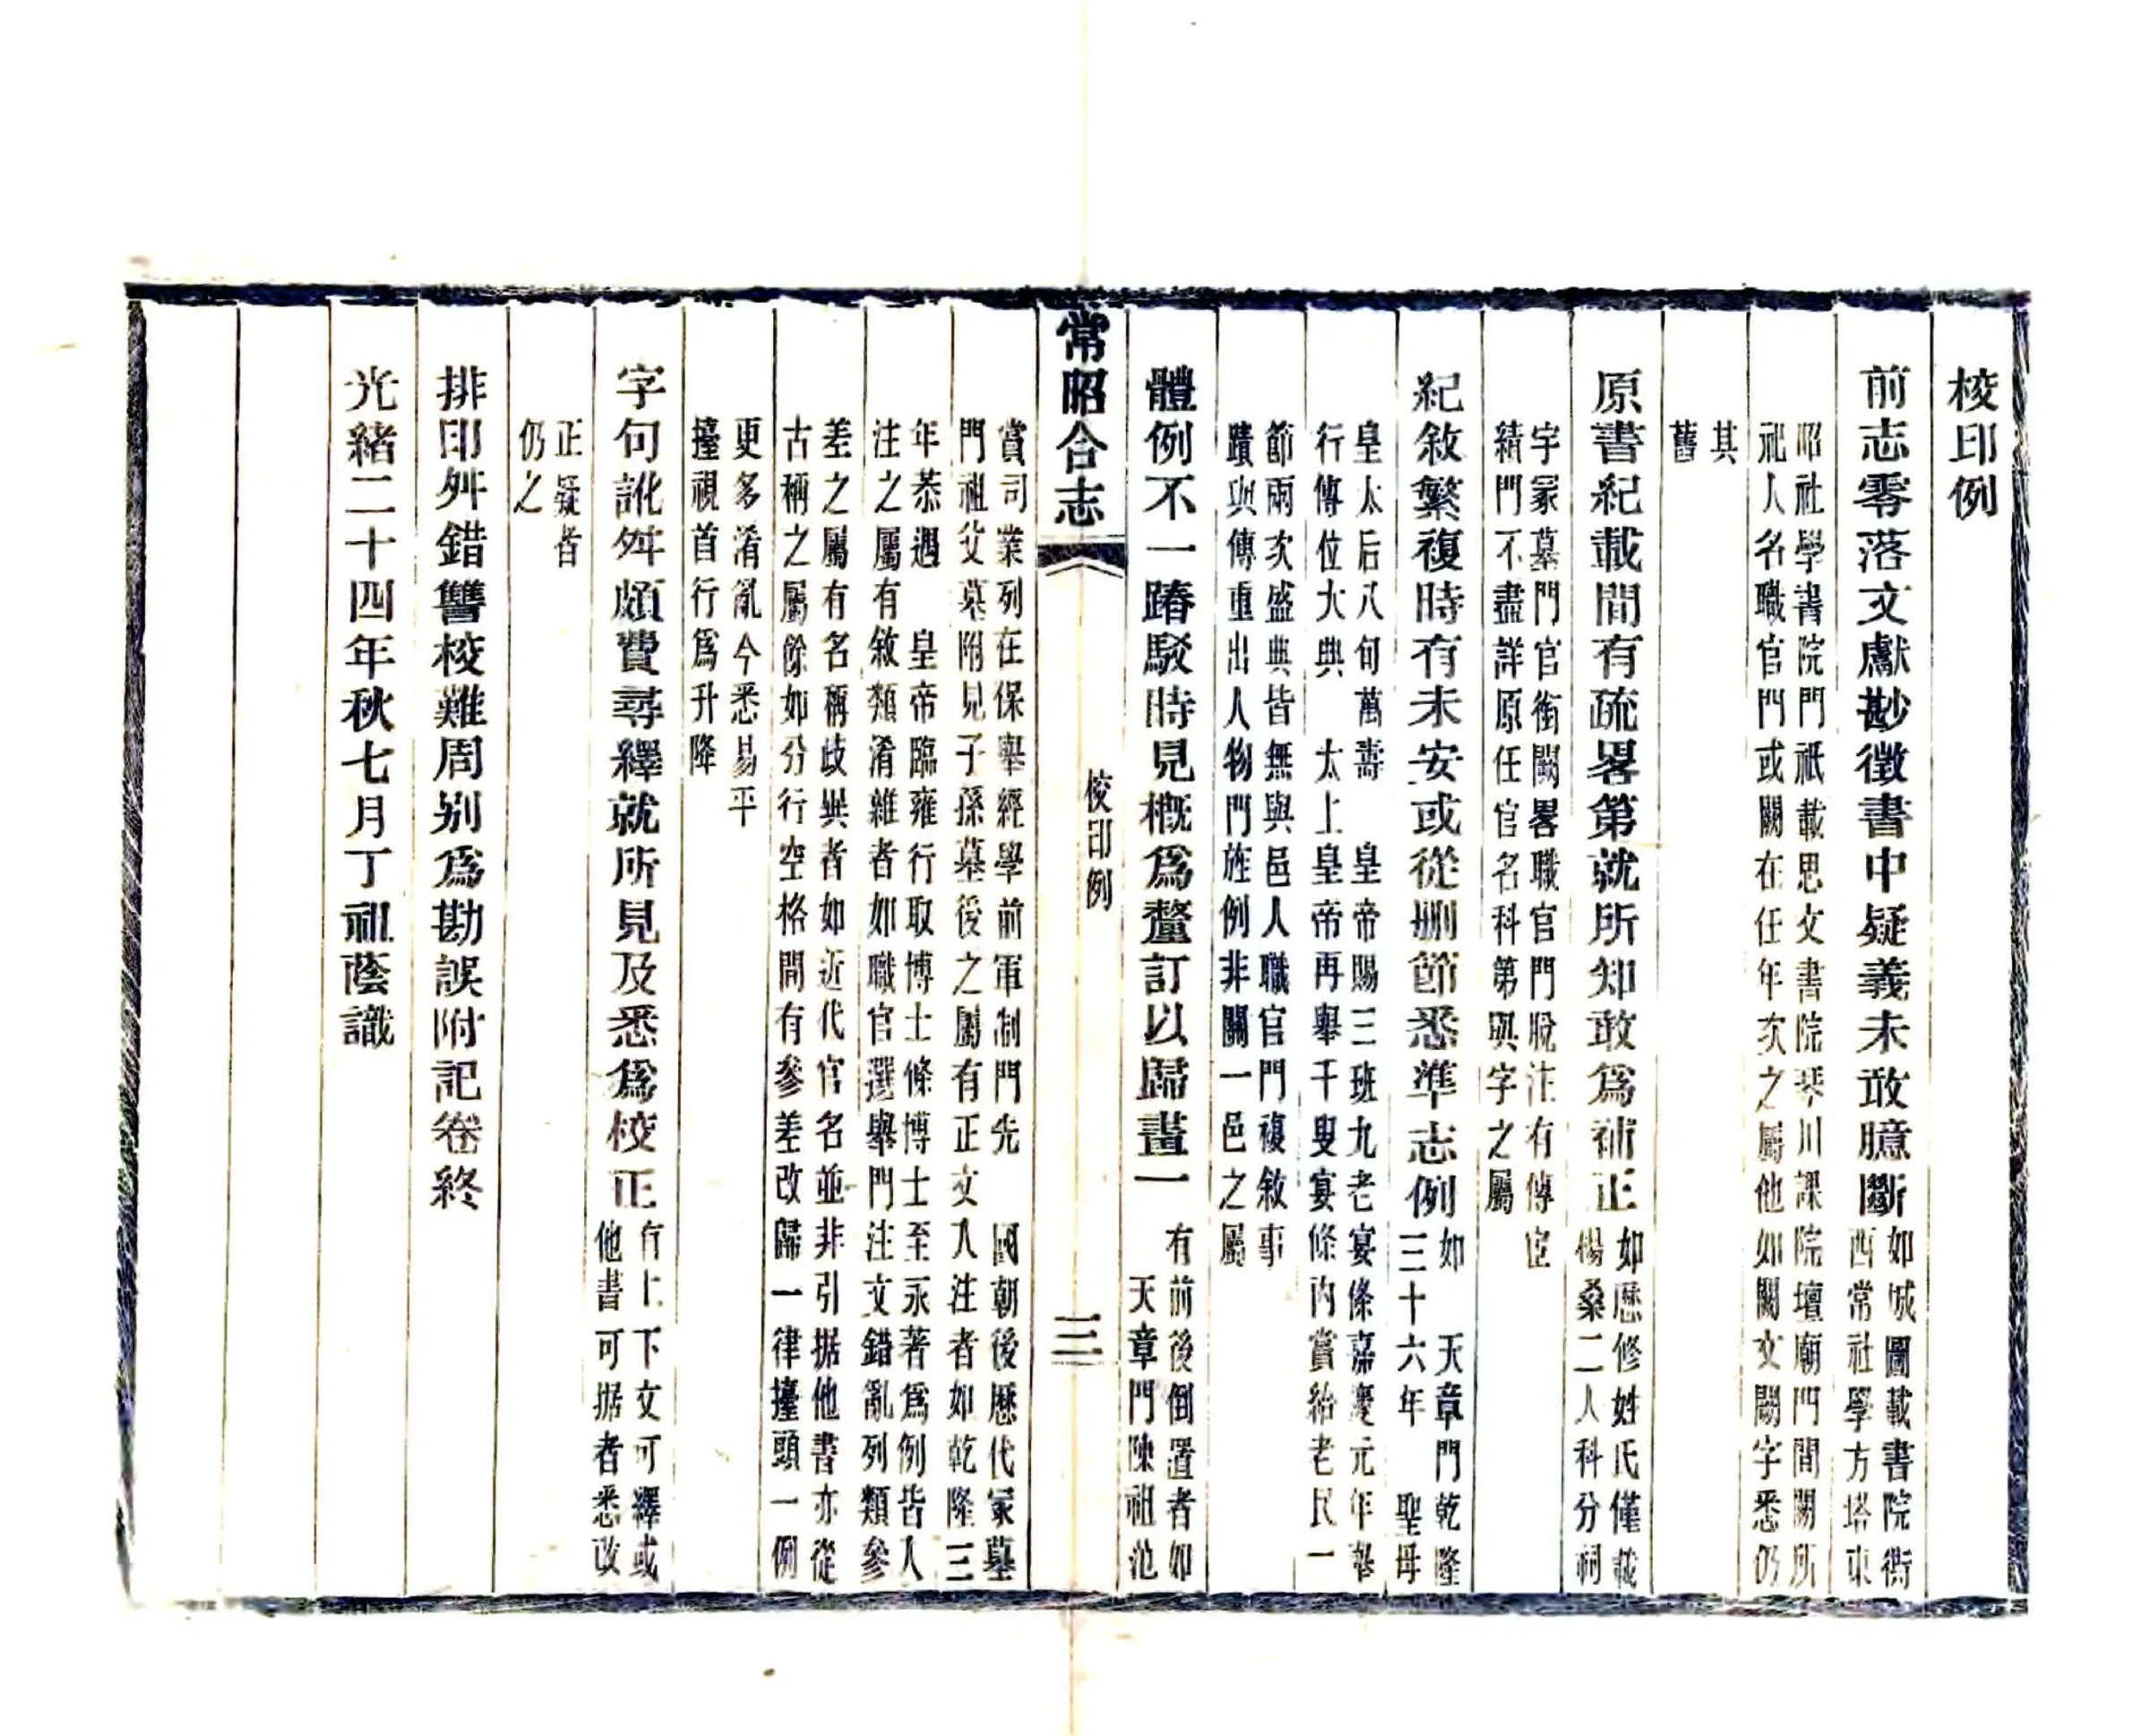 校印例
前志零落文獻尠徵書中疑義未敢臆斷如城圖載書院街西常社學方塔東
昭社學書院門祇載思文書院琴川課院壇廟門間闕所祀人名職官門或闕在任年次之屬他如闕文闕字悉仍
其舊
原書紀載間有疏畧第就所知敢爲補正如歷修姓氏僅載楊桑二人科分祠
宇冢墓門官銜闕畧職官門脫注有傳宦績門不盡詳原任官名科第與字之屬
紀敘繁複時有未安或從刪節悉準志例如　天章門乾隆三十六年　聖母
皇太后八旬萬壽　皇帝賜三班九老宴條嘉慶元年舉行傳位大典　太上皇帝再舉千叟宴條內賞給老民一
節兩次盛典皆無與邑人職官門複敘事蹟與傳重出人物門旌例非關一邑之屬
體例不一踳駁時見概爲釐訂以歸畫一有前後倒置者如天章門陳祖范
常昭合志
校印例
三
賞司業列在保舉經學前軍制門先　國朝後歷代冢墓門祖父墓附見子孫墓後之屬有正文入注者如乾隆三
年恭遇　皇帝臨雍行取博士條博士至永著爲例皆入注之屬有敘類淆雜者如職官選舉門注文錯亂列類參
差之屬有名稱歧異者如近代官名並非引据他書亦從古稱之屬餘如分行空格間有參差改歸一律擡頭一例
更多淆亂今悉易平擡視首行爲升降
字句訛舛頗費尋繹就所見及悉爲校正有上下文可繹或他書可据者悉改
正疑者仍之
排印舛錯讐校難周别爲勘誤附記卷終
光緒二十四年秋七月丁祖蔭識